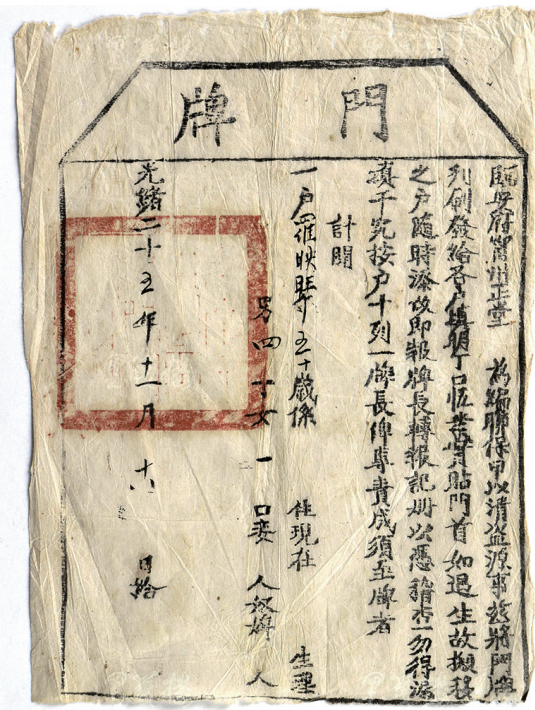 門牌
臨安府甯州正堂 為編聯保甲以清盜源事茲將門牌
列刷發給各戶填明丁口作業實貼門首如遇生故搬移
之戶隨時添改即報牌長轉報記册以憑稽查勿得混
填干究按戶十列一牌長俾專責成須至牌者
計開
一戶羅映 五十歲係 住現在 生理
男四丁女一口妾 人奴婢 人
光緒二十五年十一月十八日給